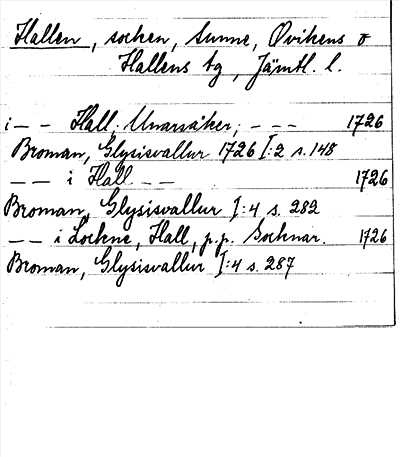 Hallen, socken, Sunne, Ovikens o
Hallens tg, Jämtl. l.
i – – Hall, Unarsåker, – – – 1726
Broman, Glysisvallur 1726 I:2 s. 148
– – i Hall – – 1726
Broman, Glysisvallur I:4 s. 282
– – i Lockne, Hall, p.p. Socknar. 1726
Broman, Glysisvallur I:4 s. 287